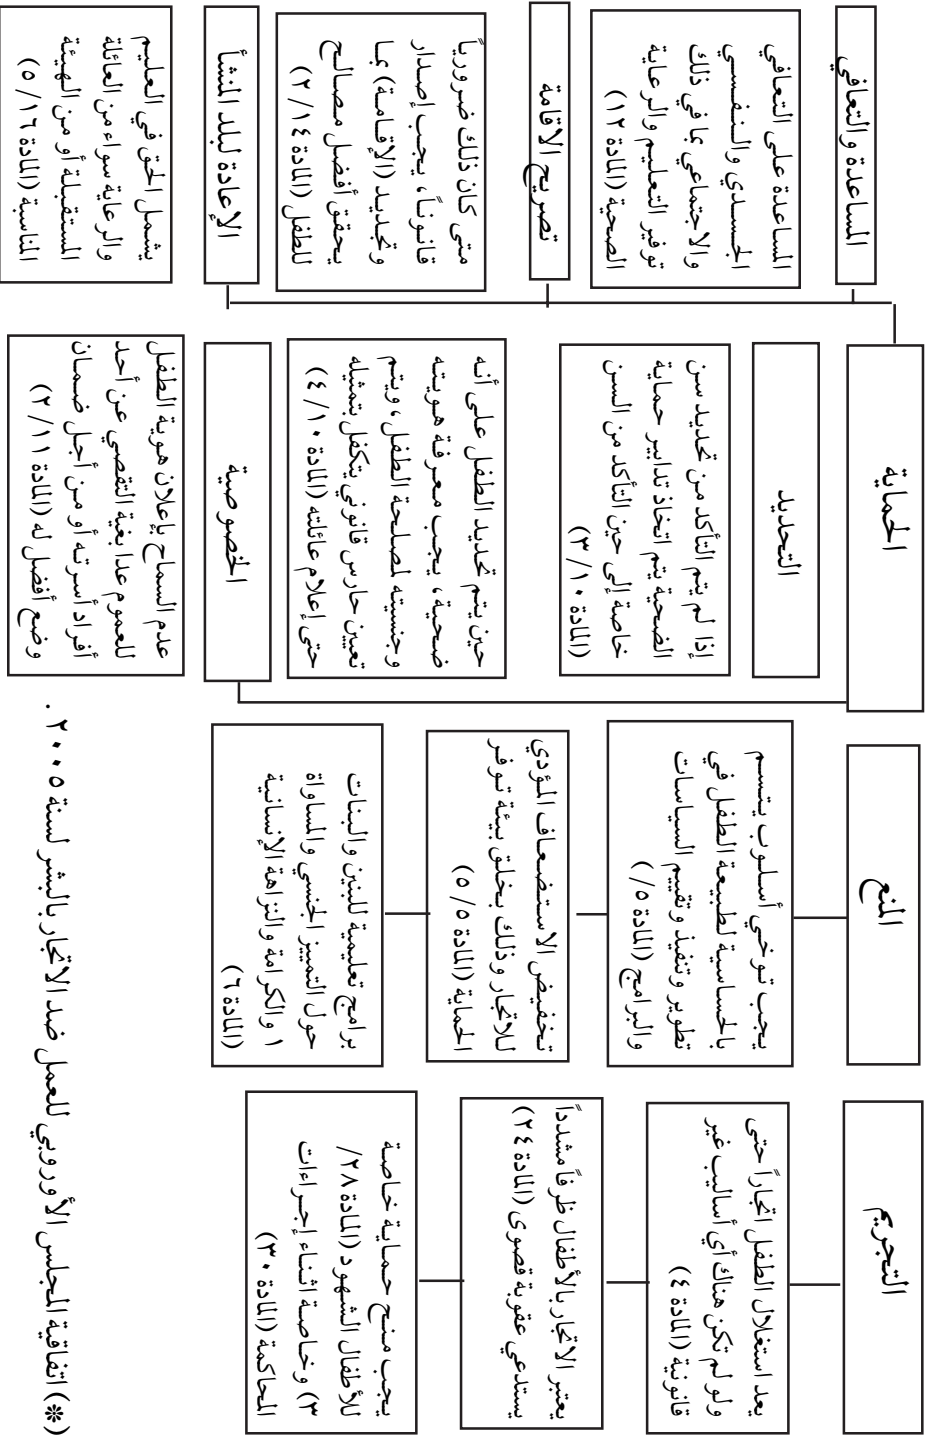 التجريم
يعد استغلال الطفل اتجاراً حتى
ولو لم تكن هناك أي أساليب غير
قانونية (المادة ٤)
يعتبر الاتجار بالأطفال ظرفاً مشدداً
يستدعي عقوبة قصوى (المادة ٢٤)
يجب منح حماية خاصة
للأطفال الشهود (المادة ٢٨/
٣) وخاصة اثناء إجراءات
المحاكمة (المادة ٣٠)
المنع
يجب توخي أسلوب يتسم
بالحساسية لطبيعة الطفل في
تطوير وتنفيذ وتقييم السياسات
والبرامج (المادة ٥/)
تخفيض الاستضعاف المؤدي
للاتجار وذلك بخلق بيئة توفر
الحماية (المادة ٥/ ٥)
برامج تعليمية للبنين والبنات
حول التمييز الجنسي والمساواة
١ والكرامة والنزاهة الإنسانية
(المادة ٦)
الحماية
التحديد
إذا لم يتم التأكد من تحديد سن
الضحية يتم اتخاذ تدابير حماية
خاصة إلى حين التأكد من السن
(المادة ١٠/ ٣)
حين يتم تحديد الطفل على أنه
ضحية، يجب معرفة هويته
وجنسيته لمصلحة الطفل، ويتم
تعيين حارس قانوني يتكفل بتمثيله
حتى إعلام عائلته (المادة ١٠/ ٤)
الخصوصية
عدم السماح بإعلان هوية الطفل
للعموم عدا بغية التقصي عن أحد
أفراد أسرته أو من أجل ضمان
وضع أفضل له (المادة ١١/ ٢)
المساعدة والتعافي
المساعدة على التعافي
الجسدي والنفسي
والاجتماعي بما في ذلك
توفير التعليم والرعاية
الصحية (المادة ١٢)
تصريح الاقامة
متى كان ذلك ضرورياً
قانوناً، يجب إصدار
وتجديد (الإقامة) بما
يحقق أفضل مصالح
للطفل (المادة ١٤/ ٢)
الإعادة لبلد المنشأ
يشمل الحق في العليم
والرعاية سواء من العائلة
المستقبلة أو من الهيئة
المناسبة (المادة ١٦/ ٥)
(*) اتفاقية المجلس الأوروبي للعمل ضد الاتجار بالبشر لسنة ٢٠٠٥.